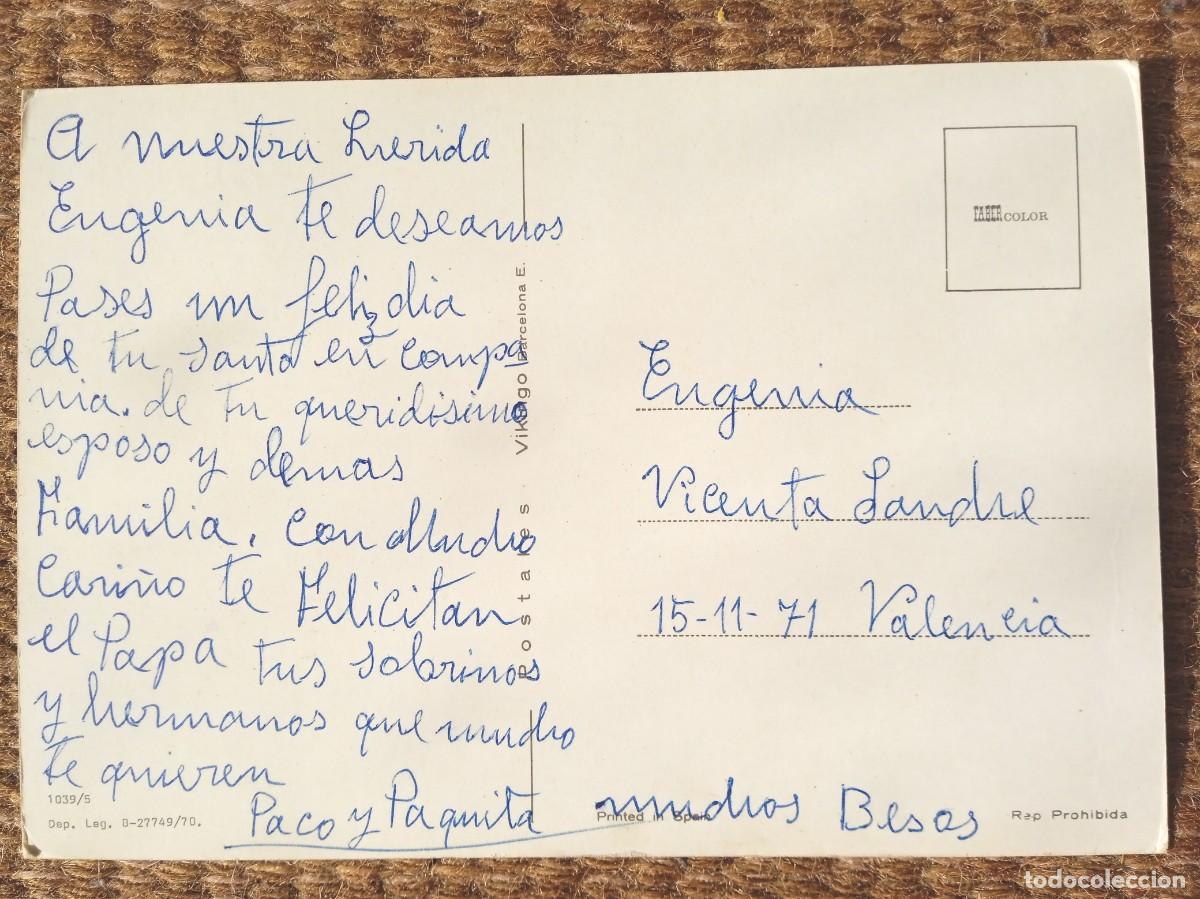 A nuestra Luerida
Eugenia te deseamos
Pases un feliz dia
de tu santo en compa
nia. de tu queridisimo
esposo y demas
Familia. con Mucho
Cariño te Felicitan
el Papa tus sobrinos
y hermanos que mucho
te quieren
Paco y Paquita muchos Besos
1039/5
Dep. Leg. B-27749/70.
Postales Vikingo Barcelona E.
Printed in Spain
FABERCOLOR
Eugenia
Vicenta
15-11-71 Valencia
Rep Prohibida
todocoleccion